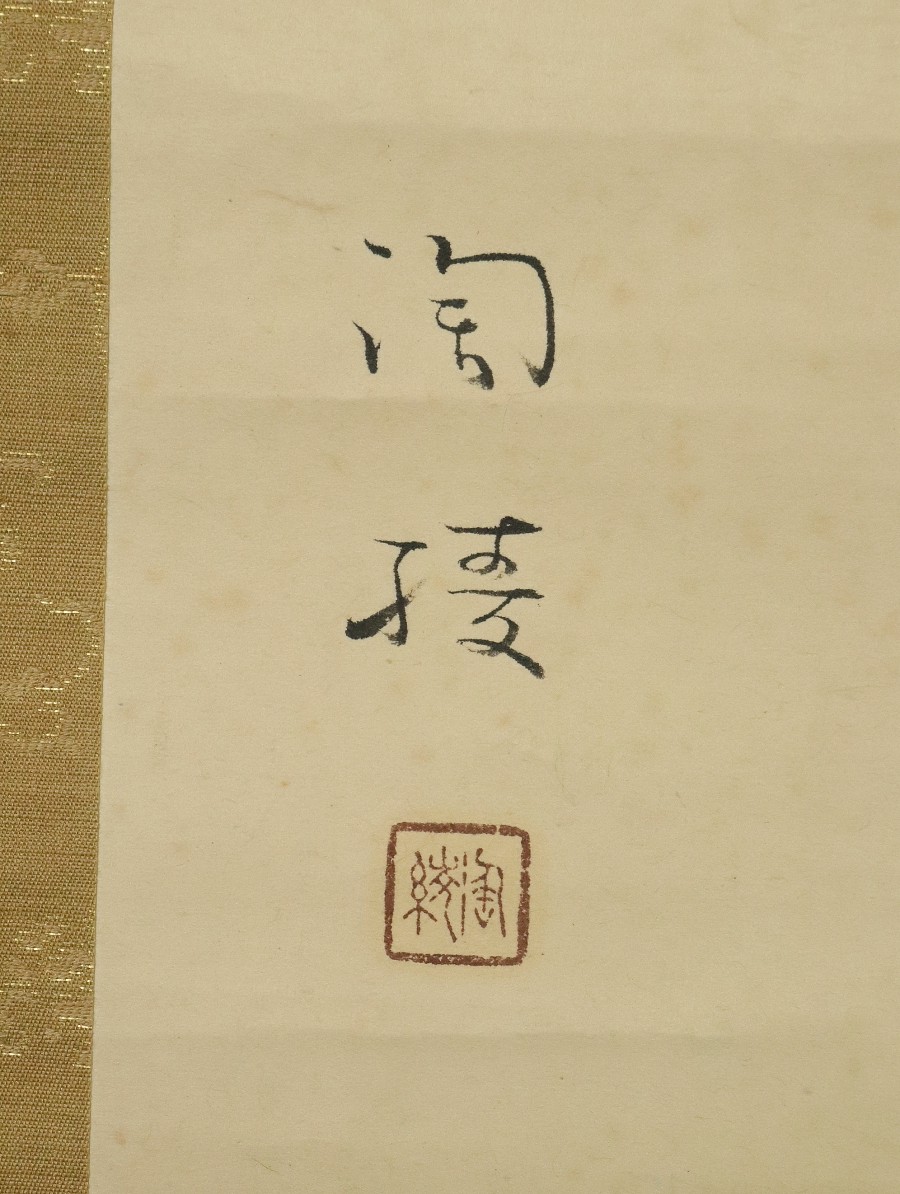 淘
綾
淘綾